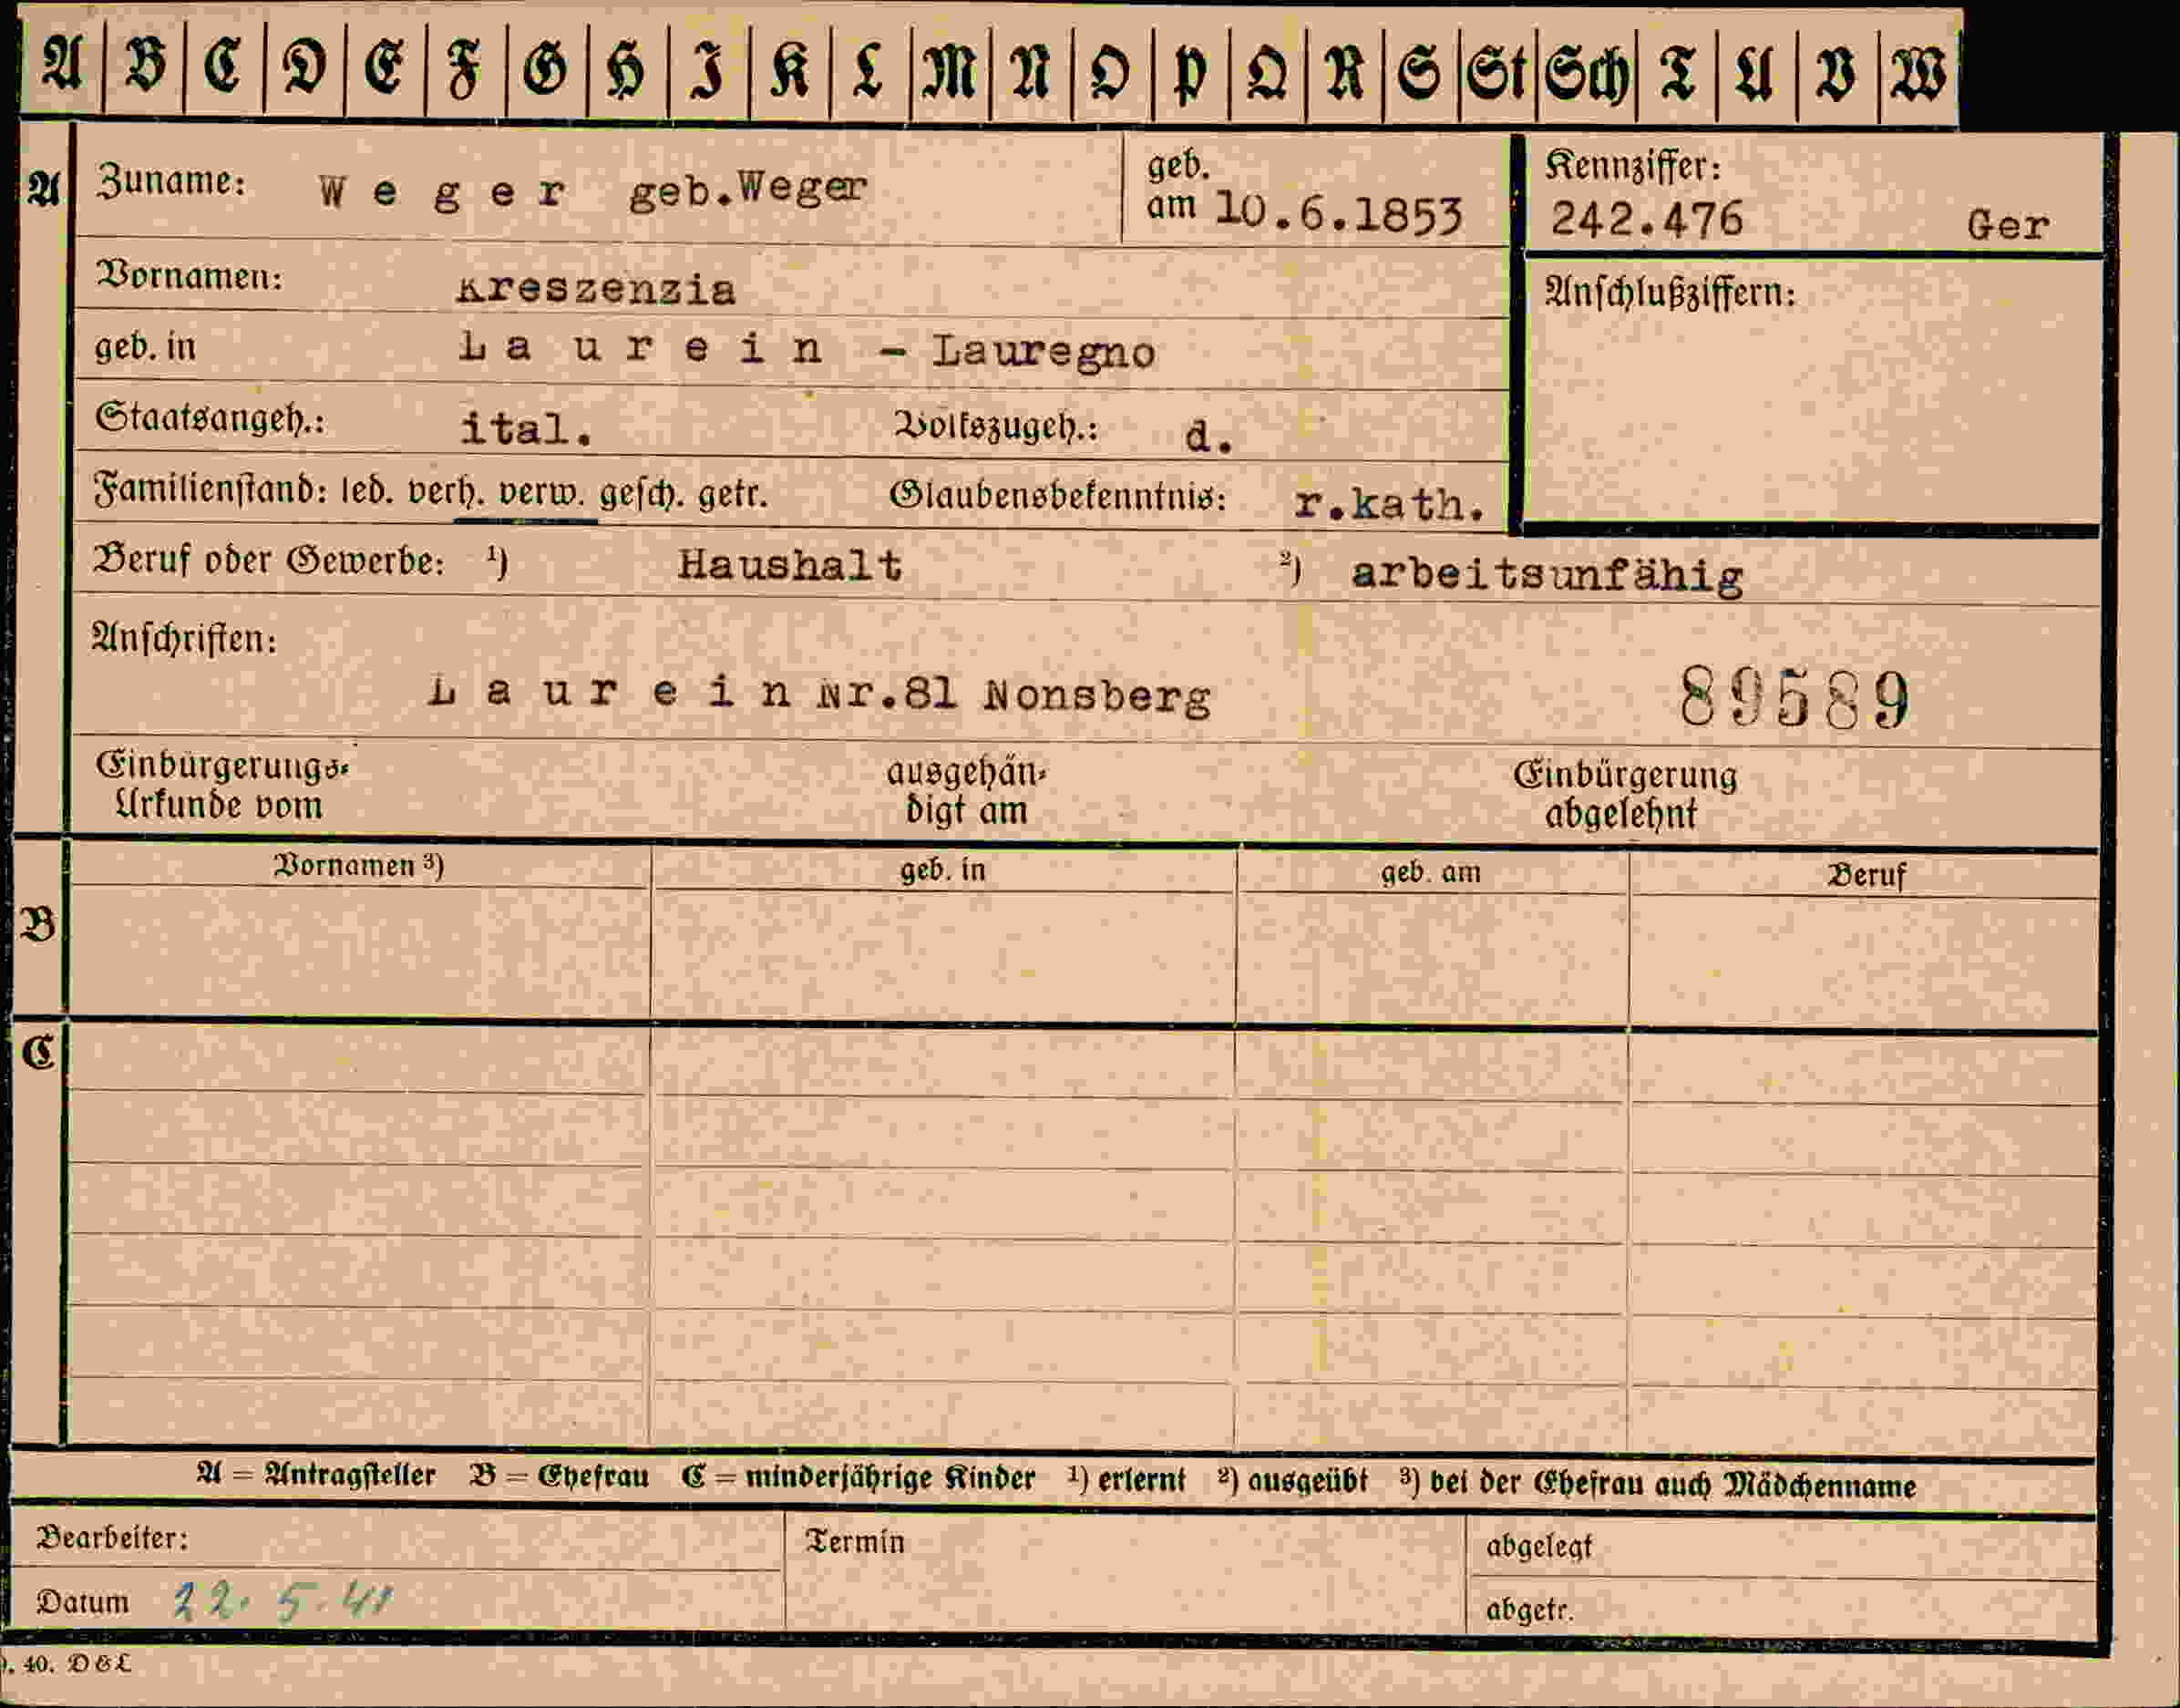 A B C D E F G H I K L M N O P Q R S St Sch T U V W
A Zuname: W e g e r geb.Weger geb. am 10.6.1853 Kennziffer: 242.476 Ger
Vornamen: Kreszenzia Anschlußziffern:
geb. in L a u r e i n - Lauregno
Staatsangeh.: ital. Volkszugeh.: d.
Familienstand: led. verh. verw. gesch. getr. Glaubensbekenntnis: r.kath.
Beruf oder Gewerbe: ¹) Haushalt ²) arbeitsunfähig
Anschriften:
L a u r e i n Nr.81 Nonsberg 89589
Einbürgerungs- ausgehän- Einbürgerung
Urkunde vom digt am abgelehnt
Vornamen ³) geb. in geb. am Beruf
B
C
A = Antragsteller B = Ehefrau C = minderjährige Kinder ¹) erlernt ²) ausgeübt ³) bei der Ehefrau auch Mädchenname
Bearbeiter: Termin abgelegt
Datum 22. 5. 41 abgetr.
. 40. D & L